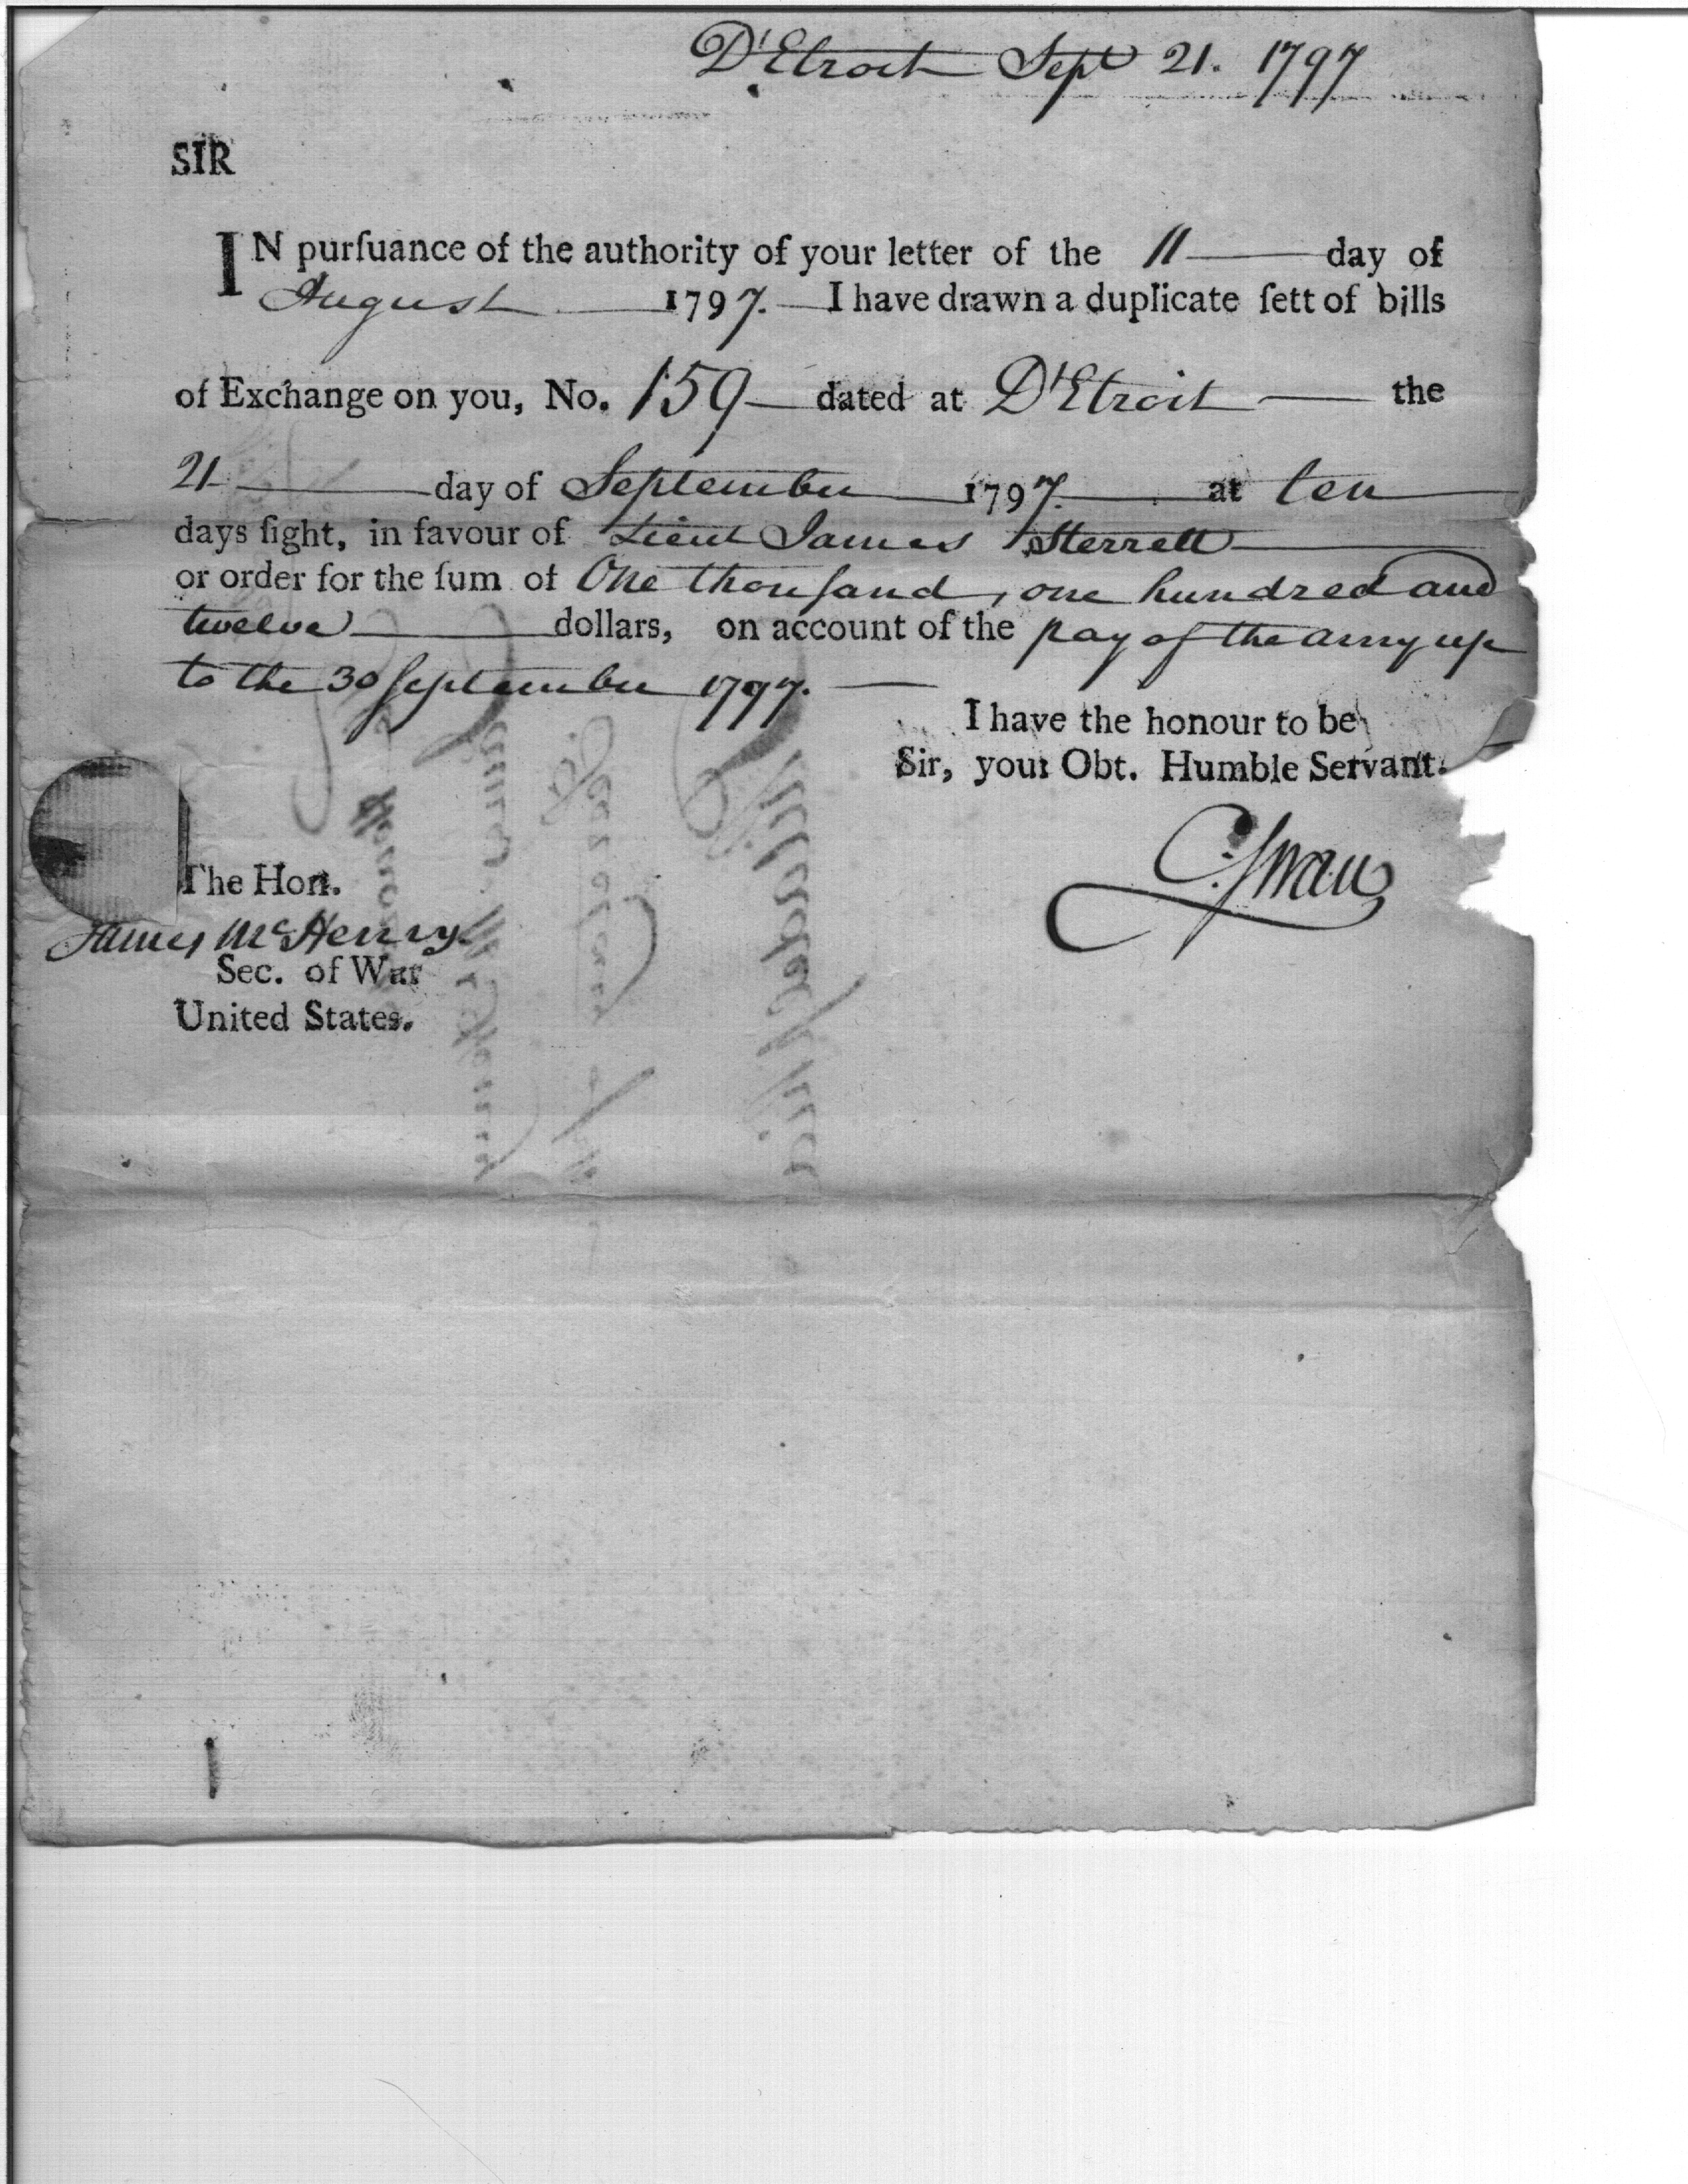 D'Etroit Sept 21. 1797
SIR
IN purſuance of the authority of your letter of the 11 day of
August 1797. I have drawn a duplicate ſett of bills
of Exchange on you, No. 159 dated at D'Etroit the
21 day of September 1797. at ten
days ſight, in favour of Lieut James Sterrett
or order for the ſum of One thouſand, one hundred and
twelve dollars, on account of the pay of the army up
to the 30 September 1797.
I have the honour to be
Sir, your Obt. Humble Servant.
C. Swan
The Hon.
James McHenry.
Sec. of War
United States.